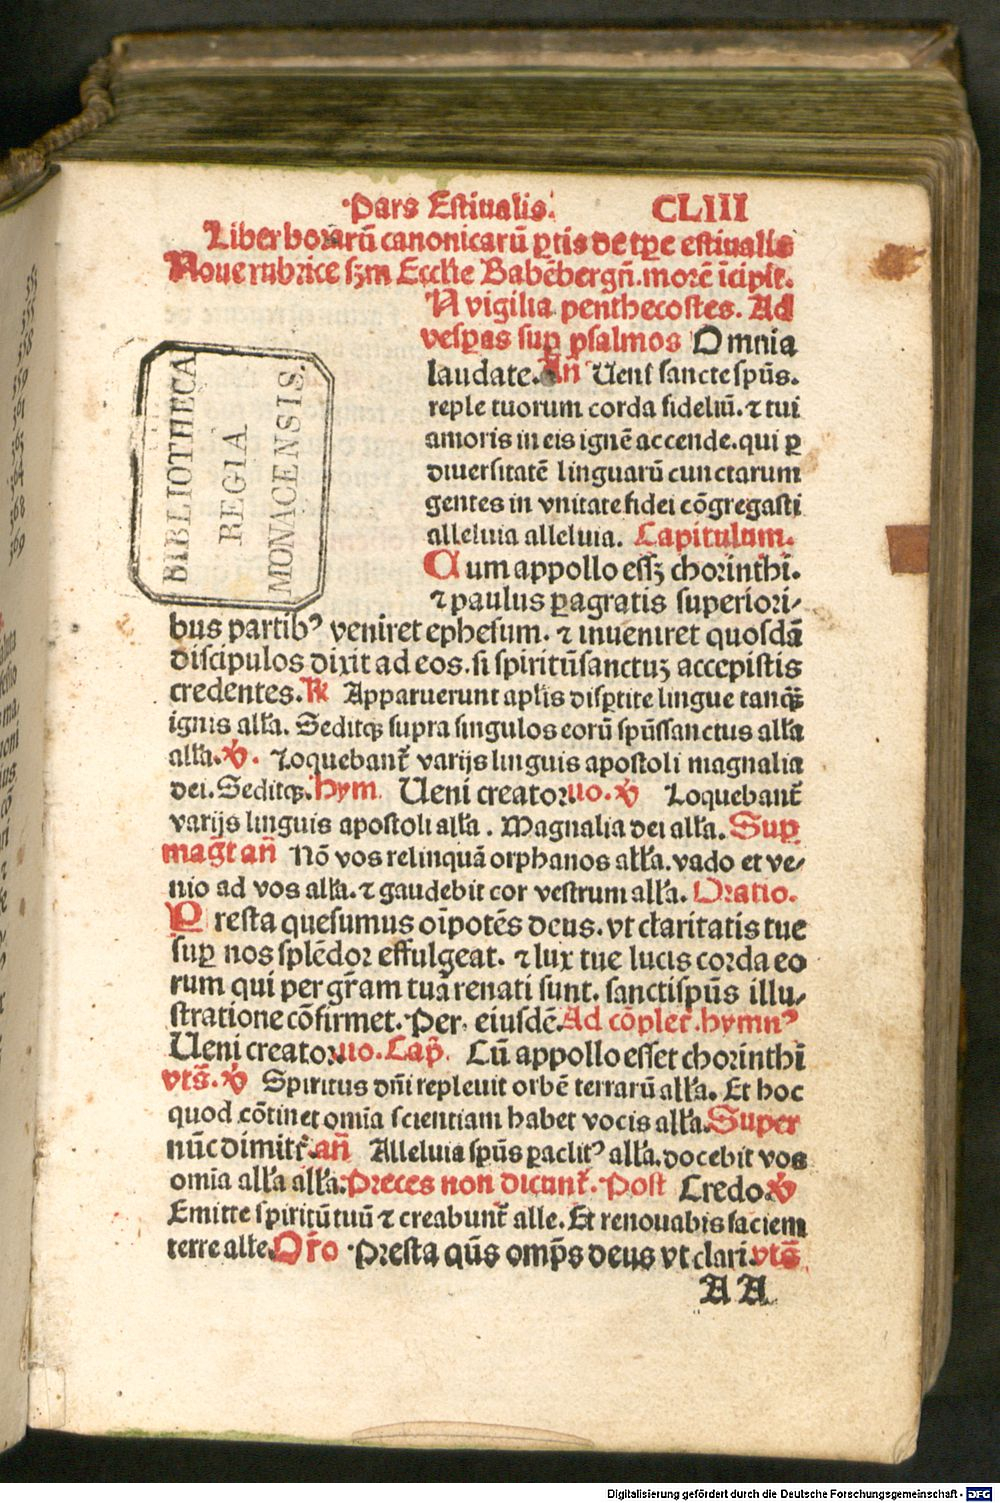 Pars Estiualis. CLIII
Liber horarũ canonicarũ ꝑtis de tꝑe estiualis
Noue rubrice scḋm Ecclẽ Babẽbergñ. morẽ ĩcipit.
N vigilia penthecostes. Ad
vesꝑas suꝑ psalmos Omnia
laudate. Añ Ueni sancte spũs.
reple tuorum corda fideliũ. ⁊ tui
amoris in eis ignẽ accende. qui ꝑ
diuersitatẽ linguarũ cunctarum
gentes in vnitate fidei cõgregasti
alleluia alleluia. Capitulum.
Cum appollo essꝫ chorinthi.
⁊ paulus ꝑagratis superiori/
bus partibꝰ veniret ephesum. ⁊ inueniret quosdã
discipulos dixit ad eos. si spiritũsanctuꝫ accepistis
credentes. ℟ Apparuerunt aplĩs disꝑtite lingue tanqꝫ̃
ignis alľa. Seditqꝫ supra singulos eorũ spũssanctus alľa
alľa. ℣. Loquebant̃ varijs linguis apostoli magnalia
dei. Seditqꝫ. hym. Ueni creator. uo. ℣ Loquebant̃
varijs linguis apostoli alľa. Magnalia dei alľa. Suꝑ
magt̃ añ Nõ vos relinquã orphanos alľa. vado et ve/
nio ad vos alľa. ⁊ gaudebit cor vestrum alľa. Oratio.
Presta quesumus oĩpotẽs deus. vt claritatis tue
suꝑ nos splẽdor effulgeat. ⁊ lux tue lucis corda eo
rum qui per gr̃am tuã renati sunt. sanctispũs illu/
stratione cõfirmet. Per. eiusdẽ. Ad cõplet̃. hymnꝰ
Ueni creator. uo. Cap̃. Cũ appollo esset chorinthi
vts̃. ℣ Spiritus dñi repleuit orbẽ terrarũ alľa. Et hoc
quod cõtinet omĩa scientiam habet vocis alľa. Super
nũc dimitt̃. añ Alleluia spũs ꝑaclitꝰ alľa. docebit vos
omĩa alľa alľa. Preces non dicunt̃. Post Credo. ℣
Emitte spiritũ tuũ ⁊ creabunt̃ alle. Et renouabis faciem
terre alle. Or̃o Presta qũs omp̃s deus vt clari. vts̃
A A
BIBLIOTHECA
REGIA
MONACENSIS.
Digitalisierung gefördert durch die Deutsche Forschungsgemeinschaft - DFG